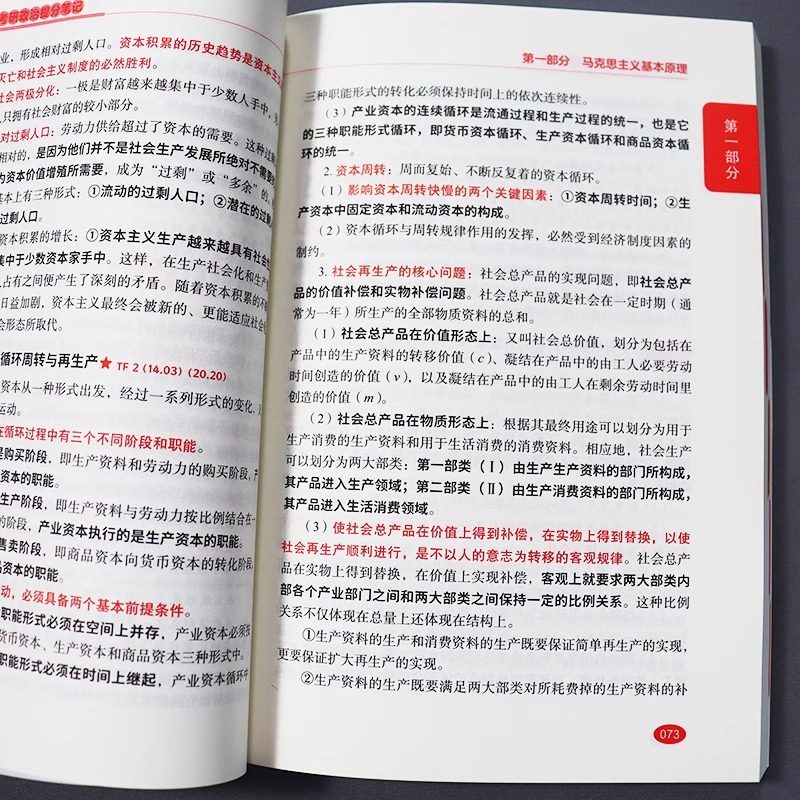 考研政治提分笔记
业，形成相对过剩人口。资本积累的历史趋势是资本主
灭亡和社会主义制度的必然胜利。
社会两极分化：一极是财富越来越集中于少数人手中，另
只拥有社会财富的较小部分。
对过剩人口：劳动力供给超过了资本的需要。这种过剩
相对的，是因为他们并不是社会生产发展所绝对不需要
为资本价值增殖所需要，成为“过剩”或“多余”的。
基本上有三种形式：①流动的过剩人口；②潜在的过剩
过剩人口。
资本积累的增长：①资本主义生产越来越具有社会性
集中于少数资本家手中。这样，在生产社会化和生产
占有之间便产生了深刻的矛盾。随着资本积累的不
日益加剧，资本主义最终会被新的、更能适应社会
会形态所取代。
循环周转与再生产★ TF 2 (14.03) (20.20)
资本从一种形式出发，经过一系列形式的变化，
运动。
在循环过程中有三个不同阶段和职能。
是购买阶段，即生产资料和劳动力的购买阶段，
资本的职能。
生产阶段，即生产资料与劳动力按比例结合在一
的阶段，产业资本执行的是生产资本的职能。
售卖阶段，即商品资本向货币资本的转化阶段，
品资本的职能。
动，必须具备两个基本前提条件。
职能形式必须在空间上并存，产业资本必须按
货币资本、生产资本和商品资本三种形式中。
职能形式必须在时间上继起，产业资本循环中
第一部分 马克思主义基本原理
三种职能形式的转化必须保持时间上的依次连续性。
（3）产业资本的连续循环是流通过程和生产过程的统一，也是它
的三种职能形式循环，即货币资本循环、生产资本循环和商品资本循
环的统一。
2. 资本周转：周而复始、不断反复着的资本循环。
（1）影响资本周转快慢的两个关键因素：①资本周转时间；②生
产资本中固定资本和流动资本的构成。
（2）资本循环与周转规律作用的发挥，必然受到经济制度因素的
制约。
3. 社会再生产的核心问题：社会总产品的实现问题，即社会总产
品的价值补偿和实物补偿问题。社会总产品就是社会在一定时期（通
常为一年）所生产的全部物质资料的总和。
（1）社会总产品在价值形态上：又叫社会总价值，划分为包括在
产品中的生产资料的转移价值（c）、凝结在产品中的由工人必要劳动
时间创造的价值（v），以及凝结在产品中的由工人在剩余劳动时间里
创造的价值（m）。
（2）社会总产品在物质形态上：根据其最终用途可以划分为用于
生产消费的生产资料和用于生活消费的消费资料。相应地，社会生产
可以划分为两大部类：第一部类（Ⅰ）由生产生产资料的部门所构成，
其产品进入生产领域；第二部类（Ⅱ）由生产消费资料的部门所构成，
其产品进入生活消费领域。
（3）使社会总产品在价值上得到补偿，在实物上得到替换，以使
社会再生产顺利进行，是不以人的意志为转移的客观规律。社会总产
品在实物上得到替换，在价值上实现补偿，客观上就要求两大部类内
部各个产业部门之间和两大部类之间保持一定的比例关系。这种比例
关系不仅体现在总量上还体现在结构上。
①生产资料的生产和消费资料的生产既要保证简单再生产的实现，
更要保证扩大再生产的实现。
②生产资料的生产既要满足两大部类对所耗费掉的生产资料的补
第一部分
073